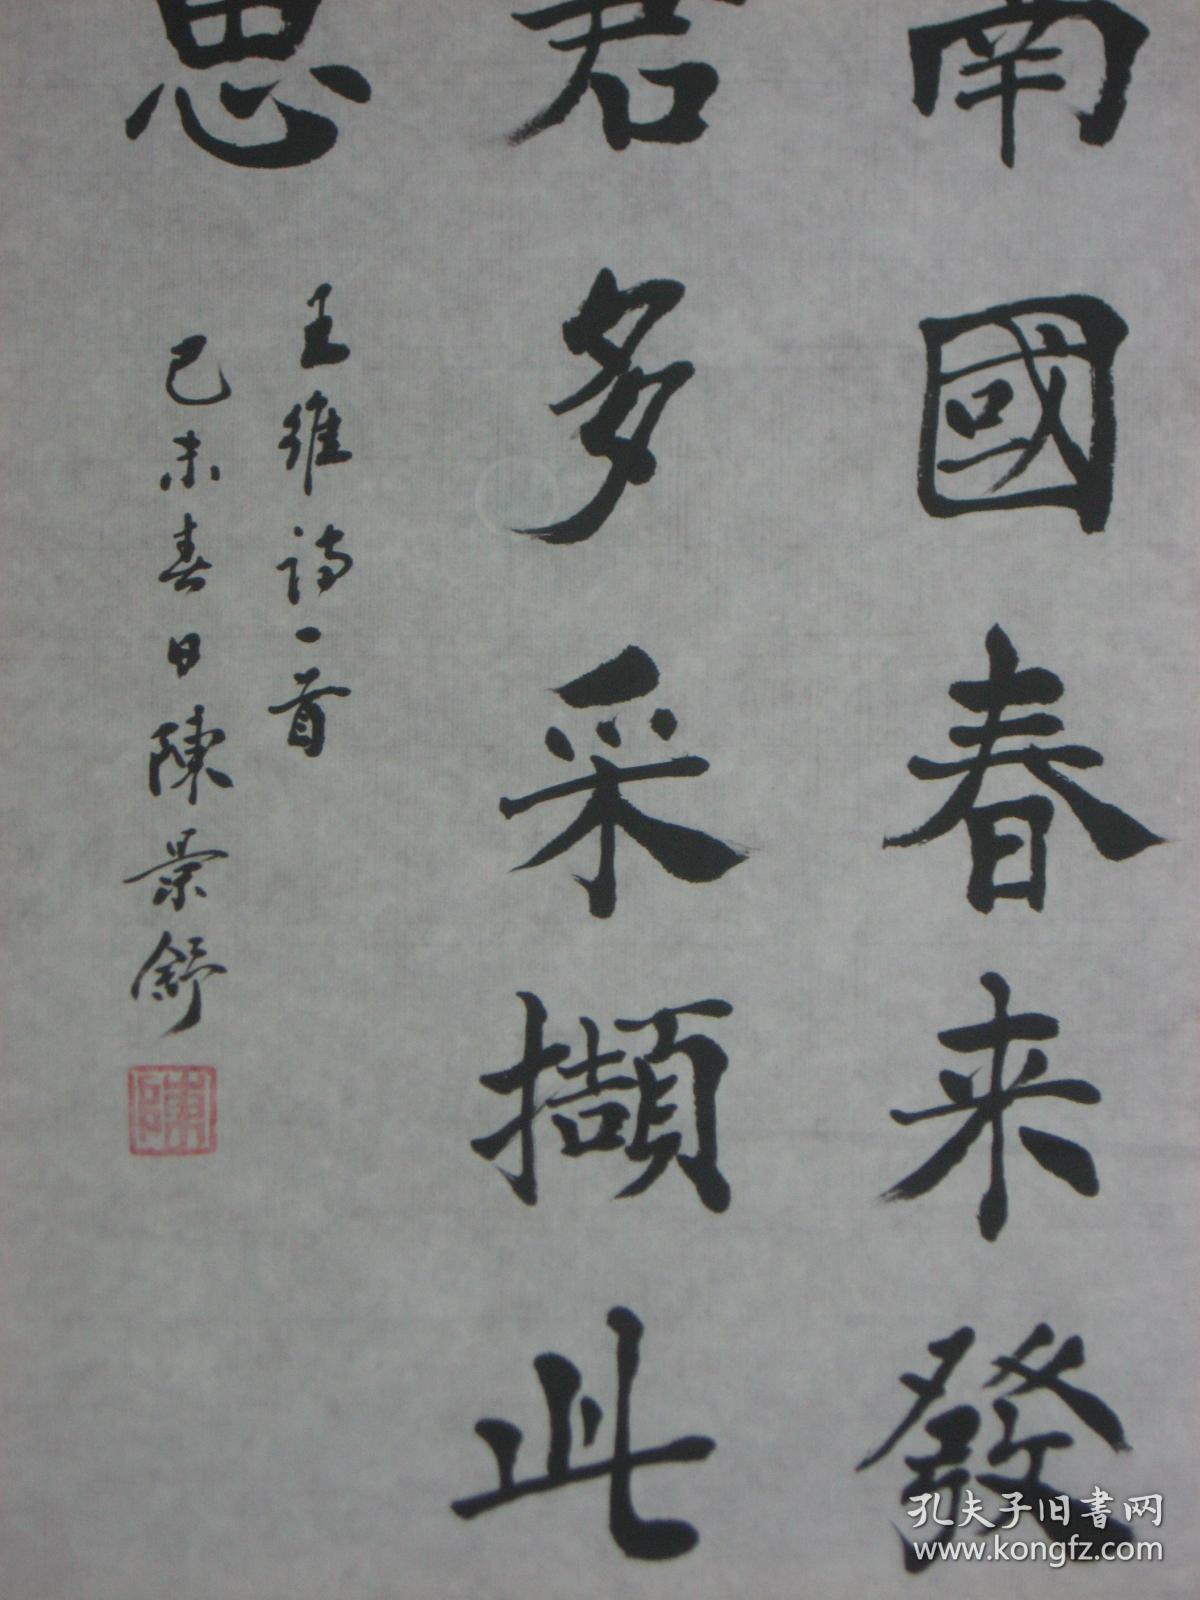 南國春来發
君多采擷此
思
王維詩一首
己未春日陳景舒
陳
孔夫子旧书网
www.kongfz.com